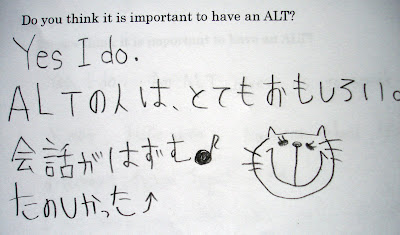 Do you think it is important to have an ALT?
Yes I do.
ALTの人は、とてもおもしろい。
会話がはずむ♪
たのしかった↑